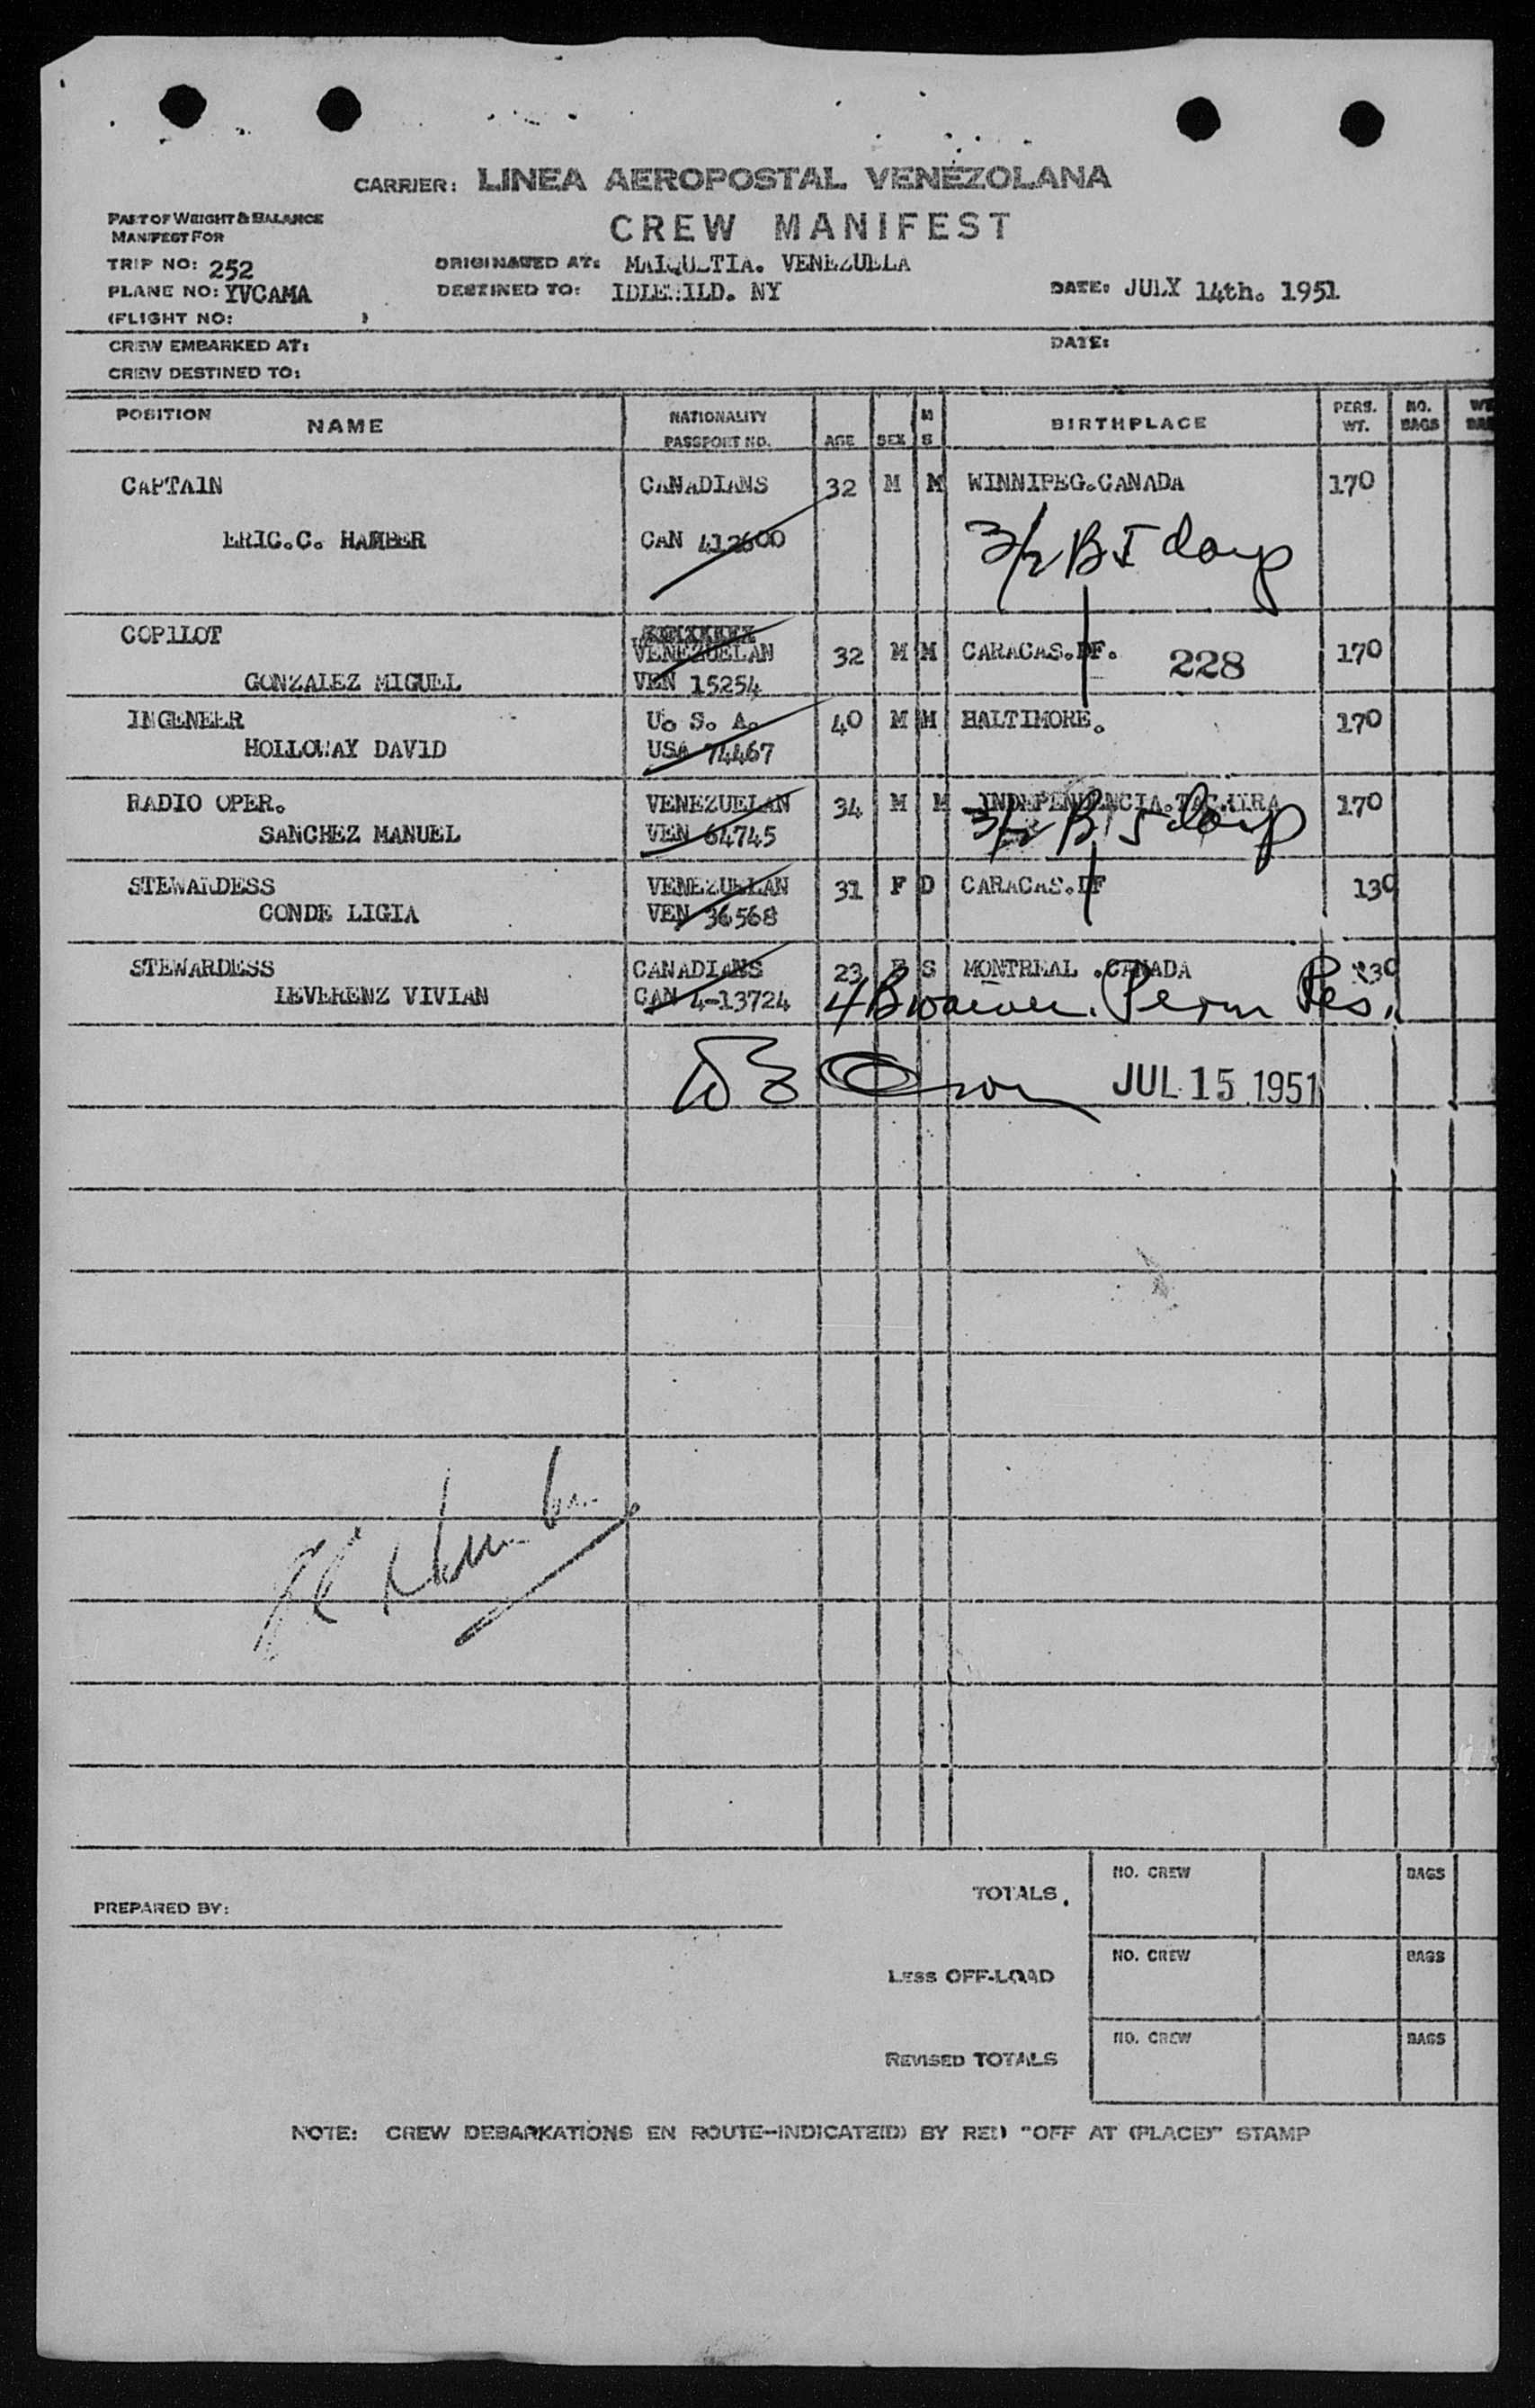 CARRIER: LINEA AEROPOSTAL VENEZOLANA
PART OF WEIGHT & BALANCE
MANIFEST FOR
CREW MANIFEST
TRIP NO: 252
ORIGINATED AT: MAIQUETIA. VENEZUELA
PLANE NO: YVCAMA
DESTINED TO: IDLEWILD. NY
DATE: JULY 14th. 1951
(FLIGHT NO: )
CREW EMBARKED AT:
DATE:
CREW DESTINED TO:
POSITION NAME NATIONALITY PASSPORT NO. AGE SEX M S BIRTHPLACE PERS. WT. NO. BAGS
CAPTAIN CANADIANS 32 M M WINNIPEG.CANADA 170
ERIC.C. HAMBER CAN 412600 3/2 B I
COPILOT VENEZUELAN 32 M M CARACAS.DF. 228 170
GONZALEZ MIGUEL VEN 15254
INGENEER U. S. A. 40 M M BALTIMORE. 170
HOLLOWAY DAVID USA 74467
RADIO OPER. VENEZUELAN 34 M M INDEPENDENCIA.TACHIRA 170
SANCHEZ MANUEL VEN 64745 3/2 B
STEWARDESS VENEZUELAN 31 F D CARACAS.DF 130
CONDE LIGIA VEN 36568
STEWARDESS CANADIANS 23 F S MONTREAL .CANADA 130
LEVERENZ VIVIAN CAN 4-13724 4B waiver. Perm Res.
JUL 15 1951
PREPARED BY:
TOTALS. NO. CREW BAGS
LESS OFF-LOAD NO. CREW BAGS
REVISED TOTALS NO. CREW BAGS
NOTE: CREW DEBARKATIONS EN ROUTE-INDICATE(D) BY RED "OFF AT (PLACE)" STAMP